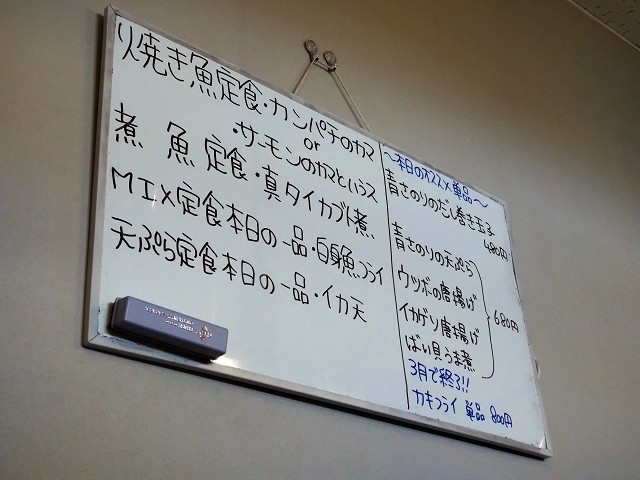 焼き魚定食・カンパチのカマ
or
・サーモンのカマというス
煮魚定食・真タイカブト煮
MIX定食本日の一品・白身魚フライ
天ぷら定食本日の一品・イカ天
〜本日のオススメ単品〜
青さのりのだし巻き玉子
480円
青さのりの天ぷら
ウツボの唐揚げ
イカゲソ唐揚げ
ばい貝うま煮
680円
3月で終了!!
カキフライ 単品 800円